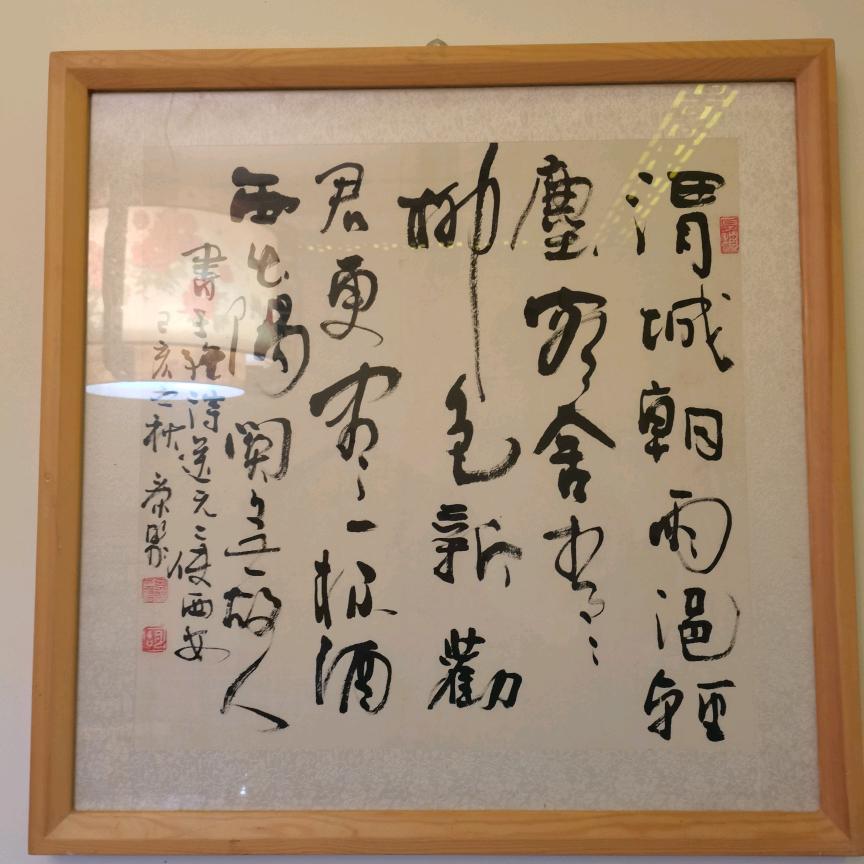 渭城朝雨浥輕
塵客舍青〻
柳色新勸
君更盡一杯酒
西出陽關無故人
書王維詩送元二使西安
己亥之秋